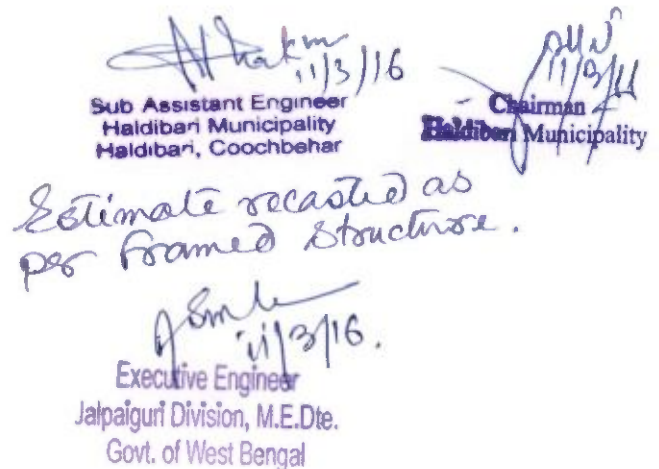 11/3/16
Sub Assistant Engineer
Haldibari Municipality
Haldibari, Coochbehar
Chairman
Haldibari Municipality
Estimate recasted as
per Framed Structure.
11/3/16.
Executive Engineer
Jalpaiguri Division, M.E.Dte.
Govt. of West Bengal